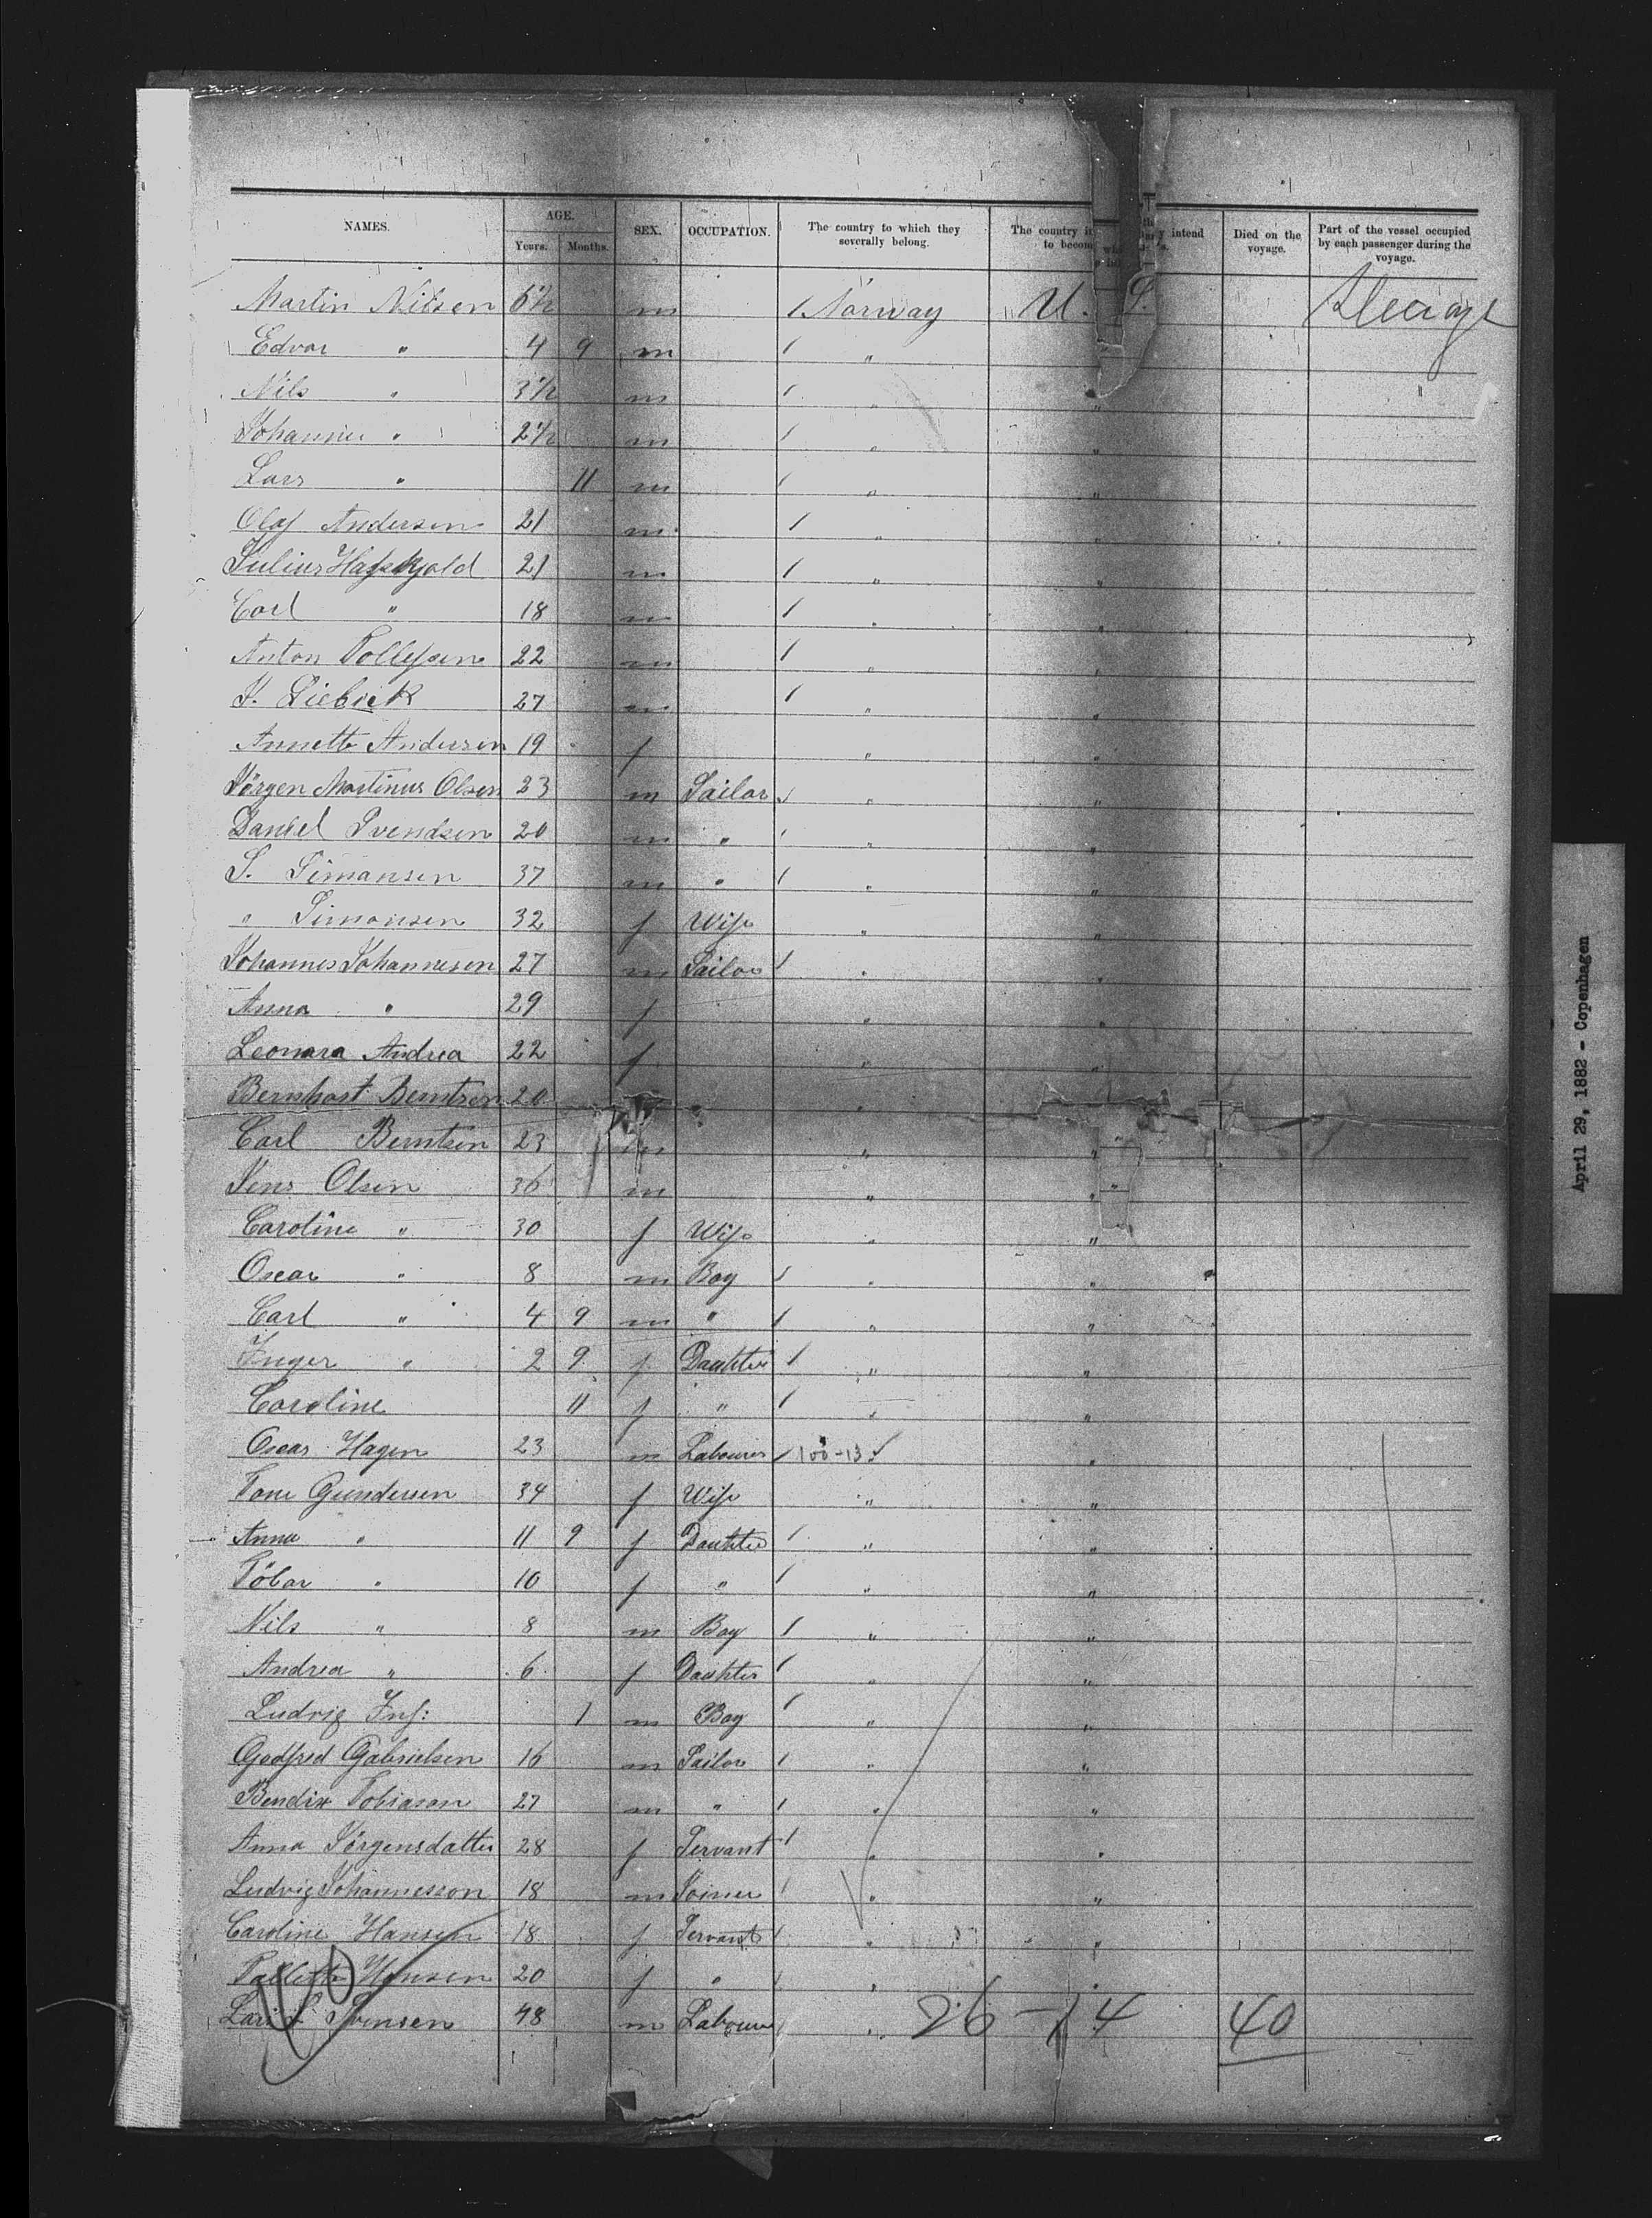 NAMES. AGE. SEX. OCCUPATION. The country to which they severally belong. The country in to becom y intend Died on the voyage. Part of the vessel occupied by each passenger during the voyage.
Years. Months.
Martin Nilsen 6½ m 1 Norway U. S. Steerage
Edvar " 4 9 m 1 "
Nils " 3½ m 1 " "
Johannes " 2½ m 1 " "
Lars " 11 m 1 " "
Olaf Andersen 21 m 1 " "
Julius 21 m 1 " "
Carl " 18 m 1 " "
Anton Tollefsen 22 m 1 " "
J. 27 m 1 " "
Annette Andersen 19 f " "
Jörgen Martinus Olsen 23 m Sailor 1 " "
Daniel Svendsen 20 m " 1 " "
S. Simonsen 37 m " 1 " "
" Simonsen 32 f Wife " "
Johannes Johannesen 27 m Sailor 1 " "
Anna " 29 f " "
Leonara Andrea 22 f " "
Bernhart Berntsen 20 "
Carl Berntsen 23 m " "
Jens Olsen 36 m " "
Caroline " 30 f Wife " "
Oscar " 8 m Boy 1 " "
Carl " 4 9 m " 1 " "
Inger " 2 9 f Daughter 1 " "
Caroline 11 f " 1 " "
Oscar Hagen 23 m Labourer 1 100-13 "
Tone Gundersen 34 f Wife " "
Anna " 11 9 f Daughter 1 " "
Töbor " 10 f " 1 " "
Nils " 8 m Boy 1 " "
Andrea " 6 f Daughter 1 " "
Ludvig Inf: 1 m Boy 1 " "
Godfred Gabrielsen 16 m Sailor 1 " "
Bendix Tobiason 27 m " 1 " "
Anna Jörgensdatter 28 f Servant 1 " "
Ludvig Johannesson 18 m Joiner 1 " "
Caroline Hansen 18 f Servant 1 " "
Hansen 20 f " 1 " "
Lars 48 m Labourer 1 " 26-14 40
April 29, 1882 - Copenhagen